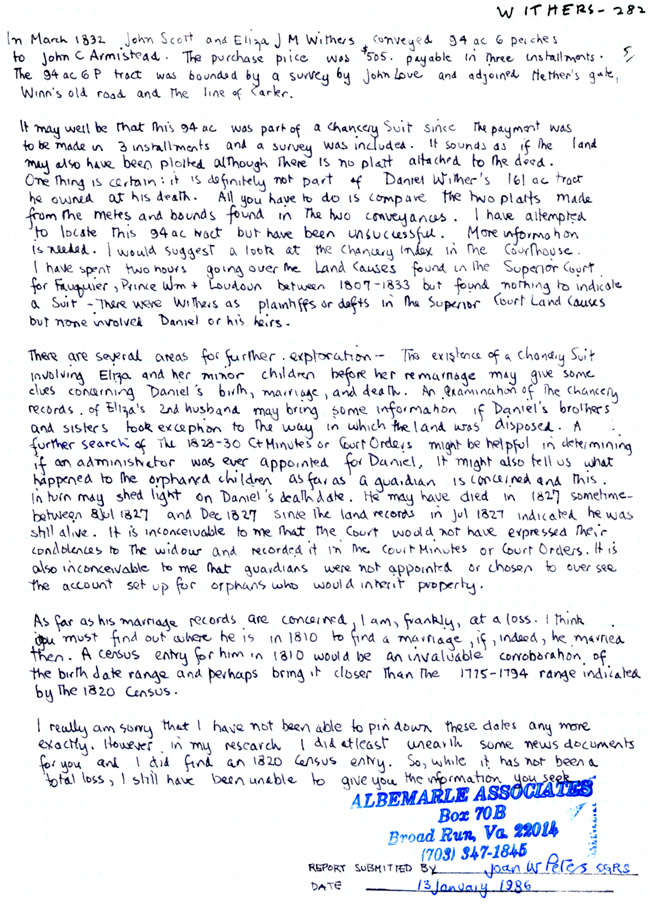 WITHERS-282
In March 1832 John Scott and Eliza J M Withers conveyed 94 ac 6 perches
to John C Armistead. The purchase price was $505. payable in three installments. 5/
The 94 ac 6 P tract was bounded by a survey by John Love and adjoined Hether's gate,
Winn's old road and the line of Carter.
It may well be that this 94 ac was part of a Chancery Suit since the payment was
to be made in 3 installments and a survey was included. It sounds as if the land
may also have been plotted although there is no platt attached to the deed.
One thing is certain: it is definitely not part of Daniel Wither's 161 ac tract
he owned at his death. All you have to do is compare the two platts made
from the metes and bounds found in the two conveyances. I have attempted
to locate this 94 ac tract but have been unsuccessful. More information
is needed. I would suggest a look at the Chancery Index in the Courthouse.
I have spent two hours going over the Land Causes found in the Superior Court
for Fauquier, Prince Wm + Loudoun between 1807-1833 but found nothing to indicate
a Suit - There were Withers as plaintiffs or defts in the Superior Court Land Causes
but none involved Daniel or his heirs.
There are several areas for further exploration - The existence of a Chancery Suit
involving Eliza and her minor children before her remarriage may give some
clues concerning Daniel's birth, marriage, and death. An examination of the Chancery
records of Eliza's 2nd husband may bring some information if Daniel's brothers
and sisters took exception to the way in which the land was disposed. A
further search of the 1828-30 Ct Minutes or Court Orders might be helpful in determining
if an administrator was ever appointed for Daniel, It might also tell us what
happened to the orphaned children as far as a guardian is concerned and this.
in turn may shed light on Daniel's death date. He may have died in 1827 sometime
between 8 Jul 1827 and Dec 1827 since the land records in Jul 1827 indicated he was
still alive. It is inconceivable to me that the Court would not have expressed their
condolences to the widow and recorded it in the Court Minutes or Court Orders. It is
also inconceivable to me that guardians were not appointed or chosen to over see
the account set up for orphans who would inherit property.
As far as his marriage records are concerned, I am, frankly, at a loss. I think
you must find out where he is in 1810 to find a marriage, if, indeed, he married
then. A census entry for him in 1810 would be an invaluable corroboration of
the birth date range and perhaps bring it closer than the 1775-1794 range indicated
by the 1820 Census.
I really am sorry that I have not been able to pin down these dates any more
exactly. However, in my research I did atleast unearth some news documents
for you and I did find an 1820 Census entry. So, while it has not been a
total loss, I still have been unable to give you the information you seek
ALBEMARLE ASSOCIATES
Box 70B
Broad Run, Va. 22014
(703) 347-1845
REPORT SUBMITTED BY Joan W Peters CGRS
DATE 13 January 1986